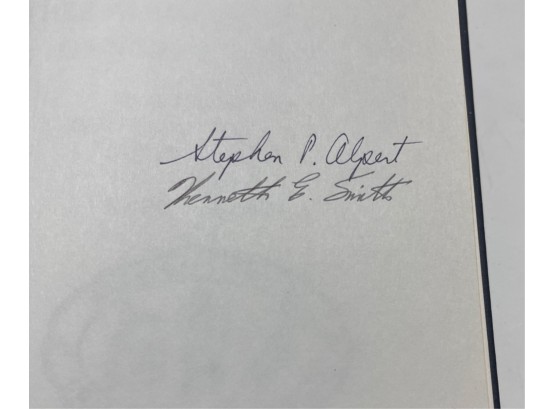 Stephen P. Alpert
Kenneth E. Smith